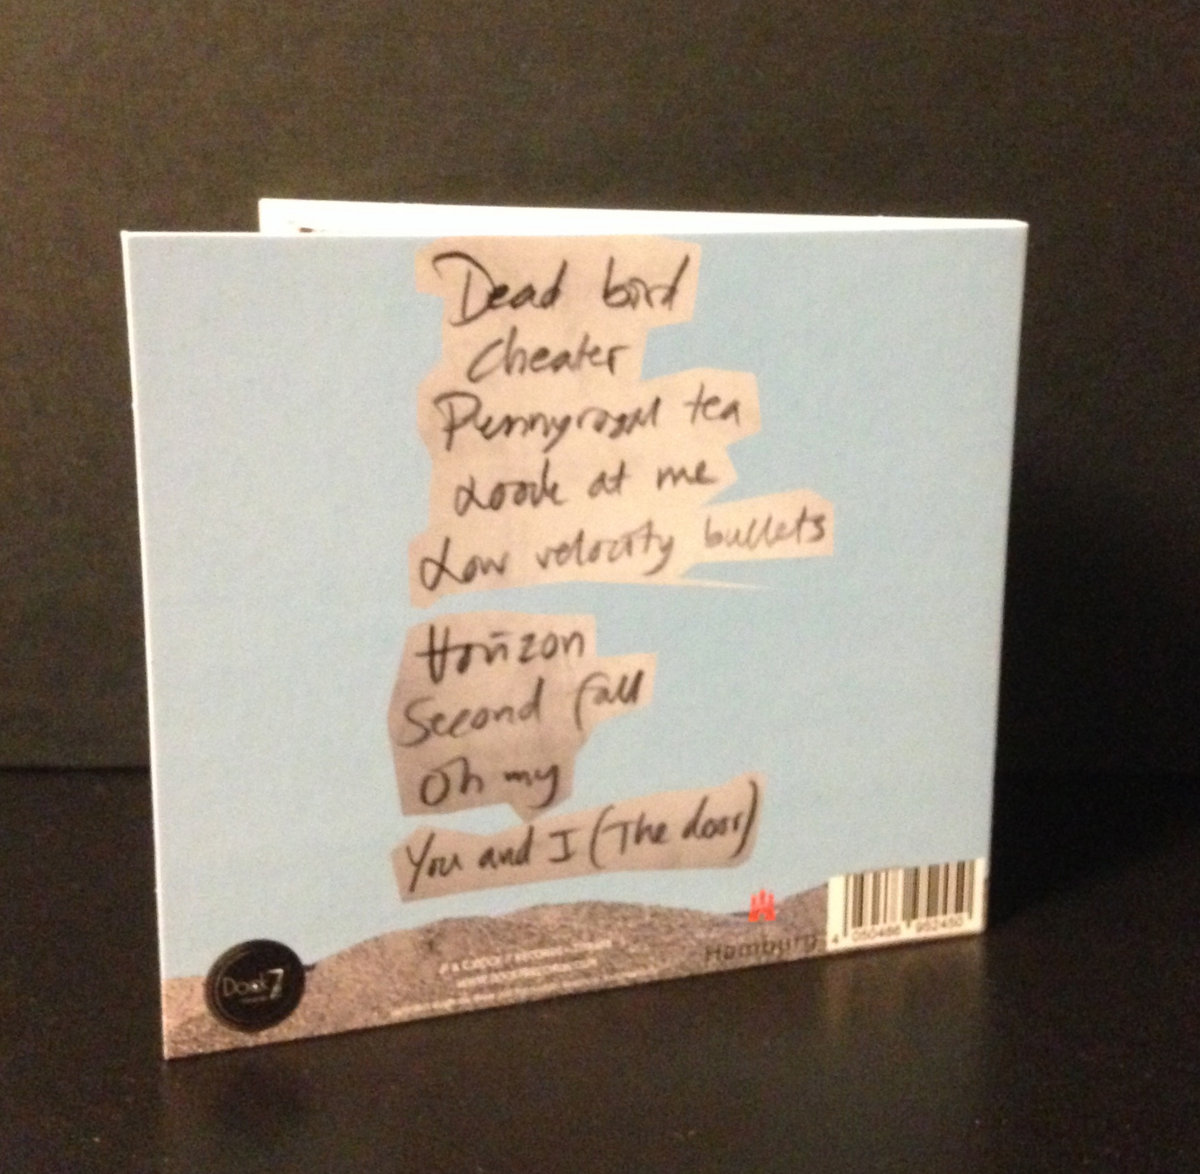 Dead bird
Cheater
Pennyroyal tea
Look at me
Low velocity bullets
Horizon
Second fall
Oh my
You and I (The door)
Hamburg
4 050486 952450
Dock7